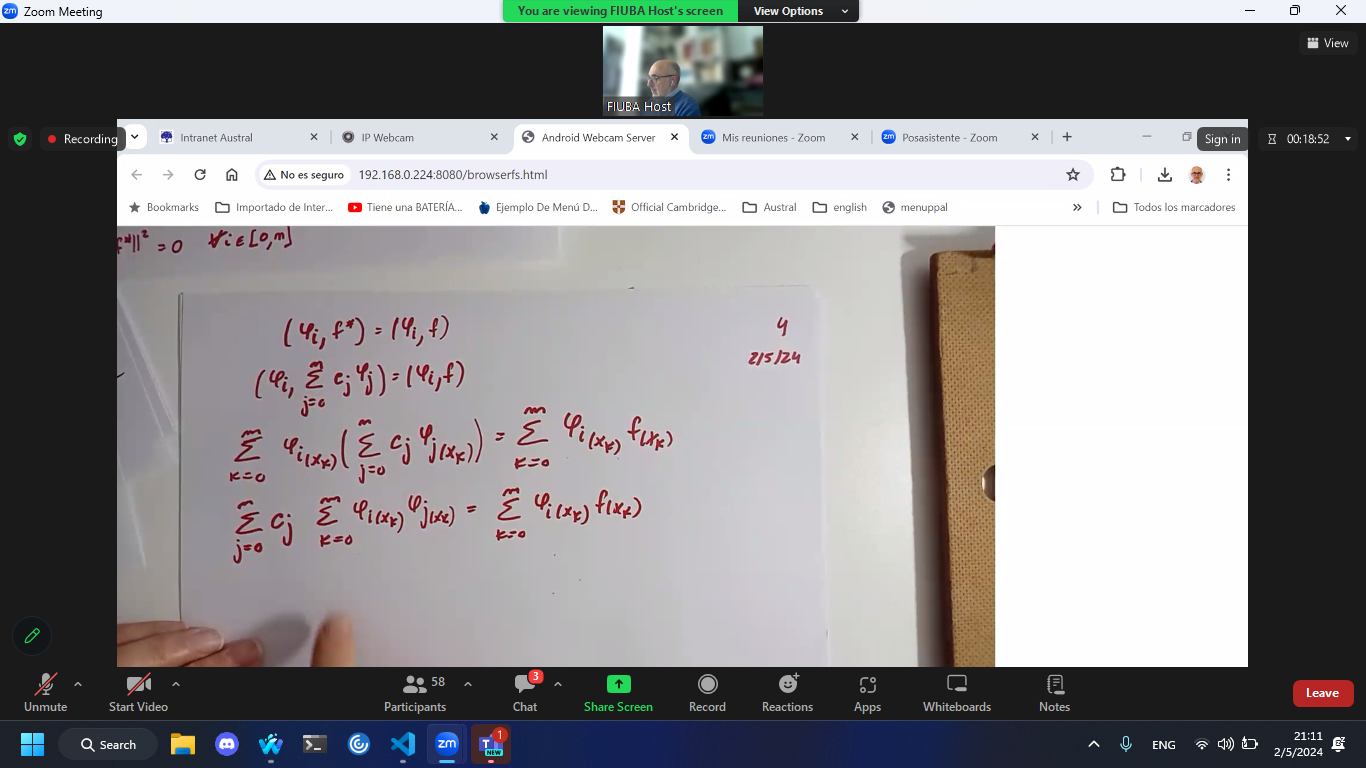 Zoom Meeting
You are viewing FIUBA Host's screen View Options
View
FIUBA Host
Recording
Intranet Austral IP Webcam Android Webcam Server Mis reuniones - Zoom Posasistente - Zoom
Sign in 00:18:52
No es seguro 192.168.0.224:8080/browserfs.html
Bookmarks Importado de Inter... Tiene una BATERÍA... Ejemplo De Menú D... Official Cambridge... Austral english menuppal » Todos los marcadores
f*||² = 0 ∀i∈[0,n]
(φi, f*) = (φi, f) 4
2/5/24
(φi, Σ_{j=0}^{n} cj φj) = (φi, f)
Σ_{k=0}^{m} φi(xk) (Σ_{j=0}^{n} cj φj(xk)) = Σ_{k=0}^{m} φi(xk) f(xk)
Σ_{j=0}^{n} cj Σ_{k=0}^{m} φi(xk) φj(xk) = Σ_{k=0}^{m} φi(xk) f(xk)
58 3
Unmute Start Video Participants Chat Share Screen Record Reactions Apps Whiteboards Notes Leave
Search NEW 1 ENG 21:11
2/5/2024